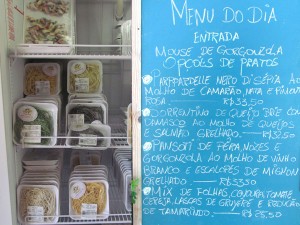 MENU DO DIA
ENTRADA
MOUSE DE GORGONZOLA
OPÇÕES DE PRATOS
PAPPARDELLE NERO DI SÉPIA AO
MOLHO DE CAMARÃO, NATA E PIMENTA
ROSA. R$33,50
SORRENTINA DE QUEIJO BRIE COM
DAMASCO AO MOLHO DE QUEIJOS
E SALMÃO GRELHADO.
PANSOTI DE PÊRA, NOZES E
GORGONZOLA AO MOLHO DE VINHO
BRANCO E ESCALOPES DE MIGNON
GRELHADO. R$33,50
MIX DE FOLHAS, CENOURA, TOMATE
CEREJA, LASCAS DE GRUYERE E REDUÇÃO
DE TAMARINDO. R$25,50